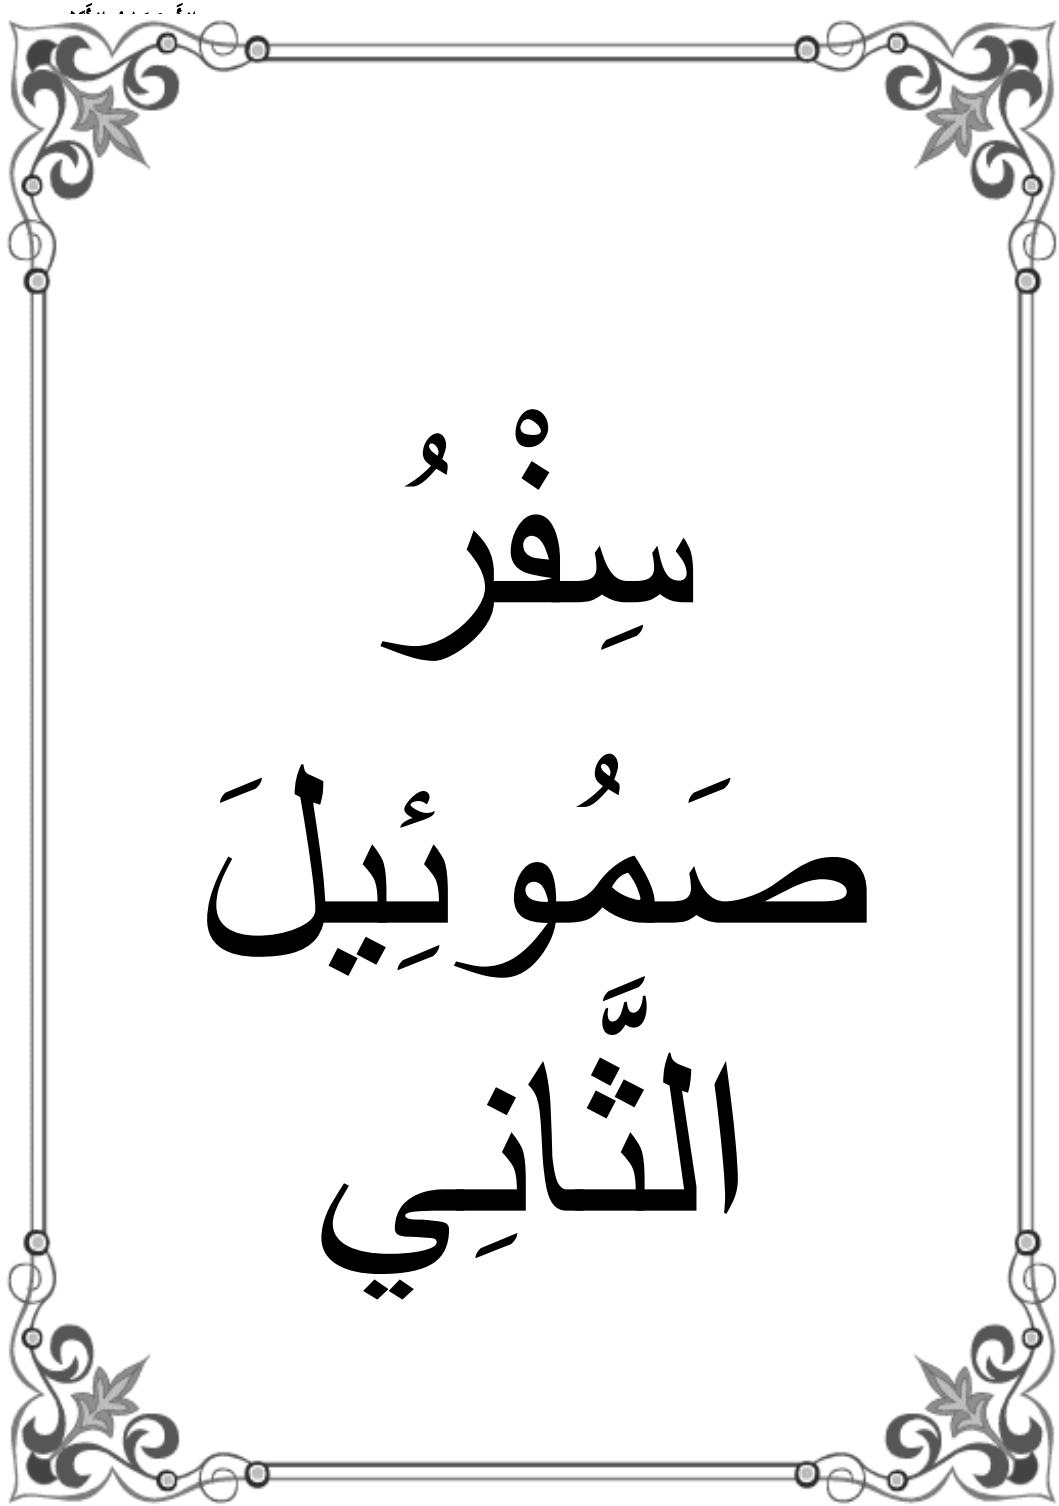 سِفْرُ
صَمُوئِيلَ
الثَّانِي